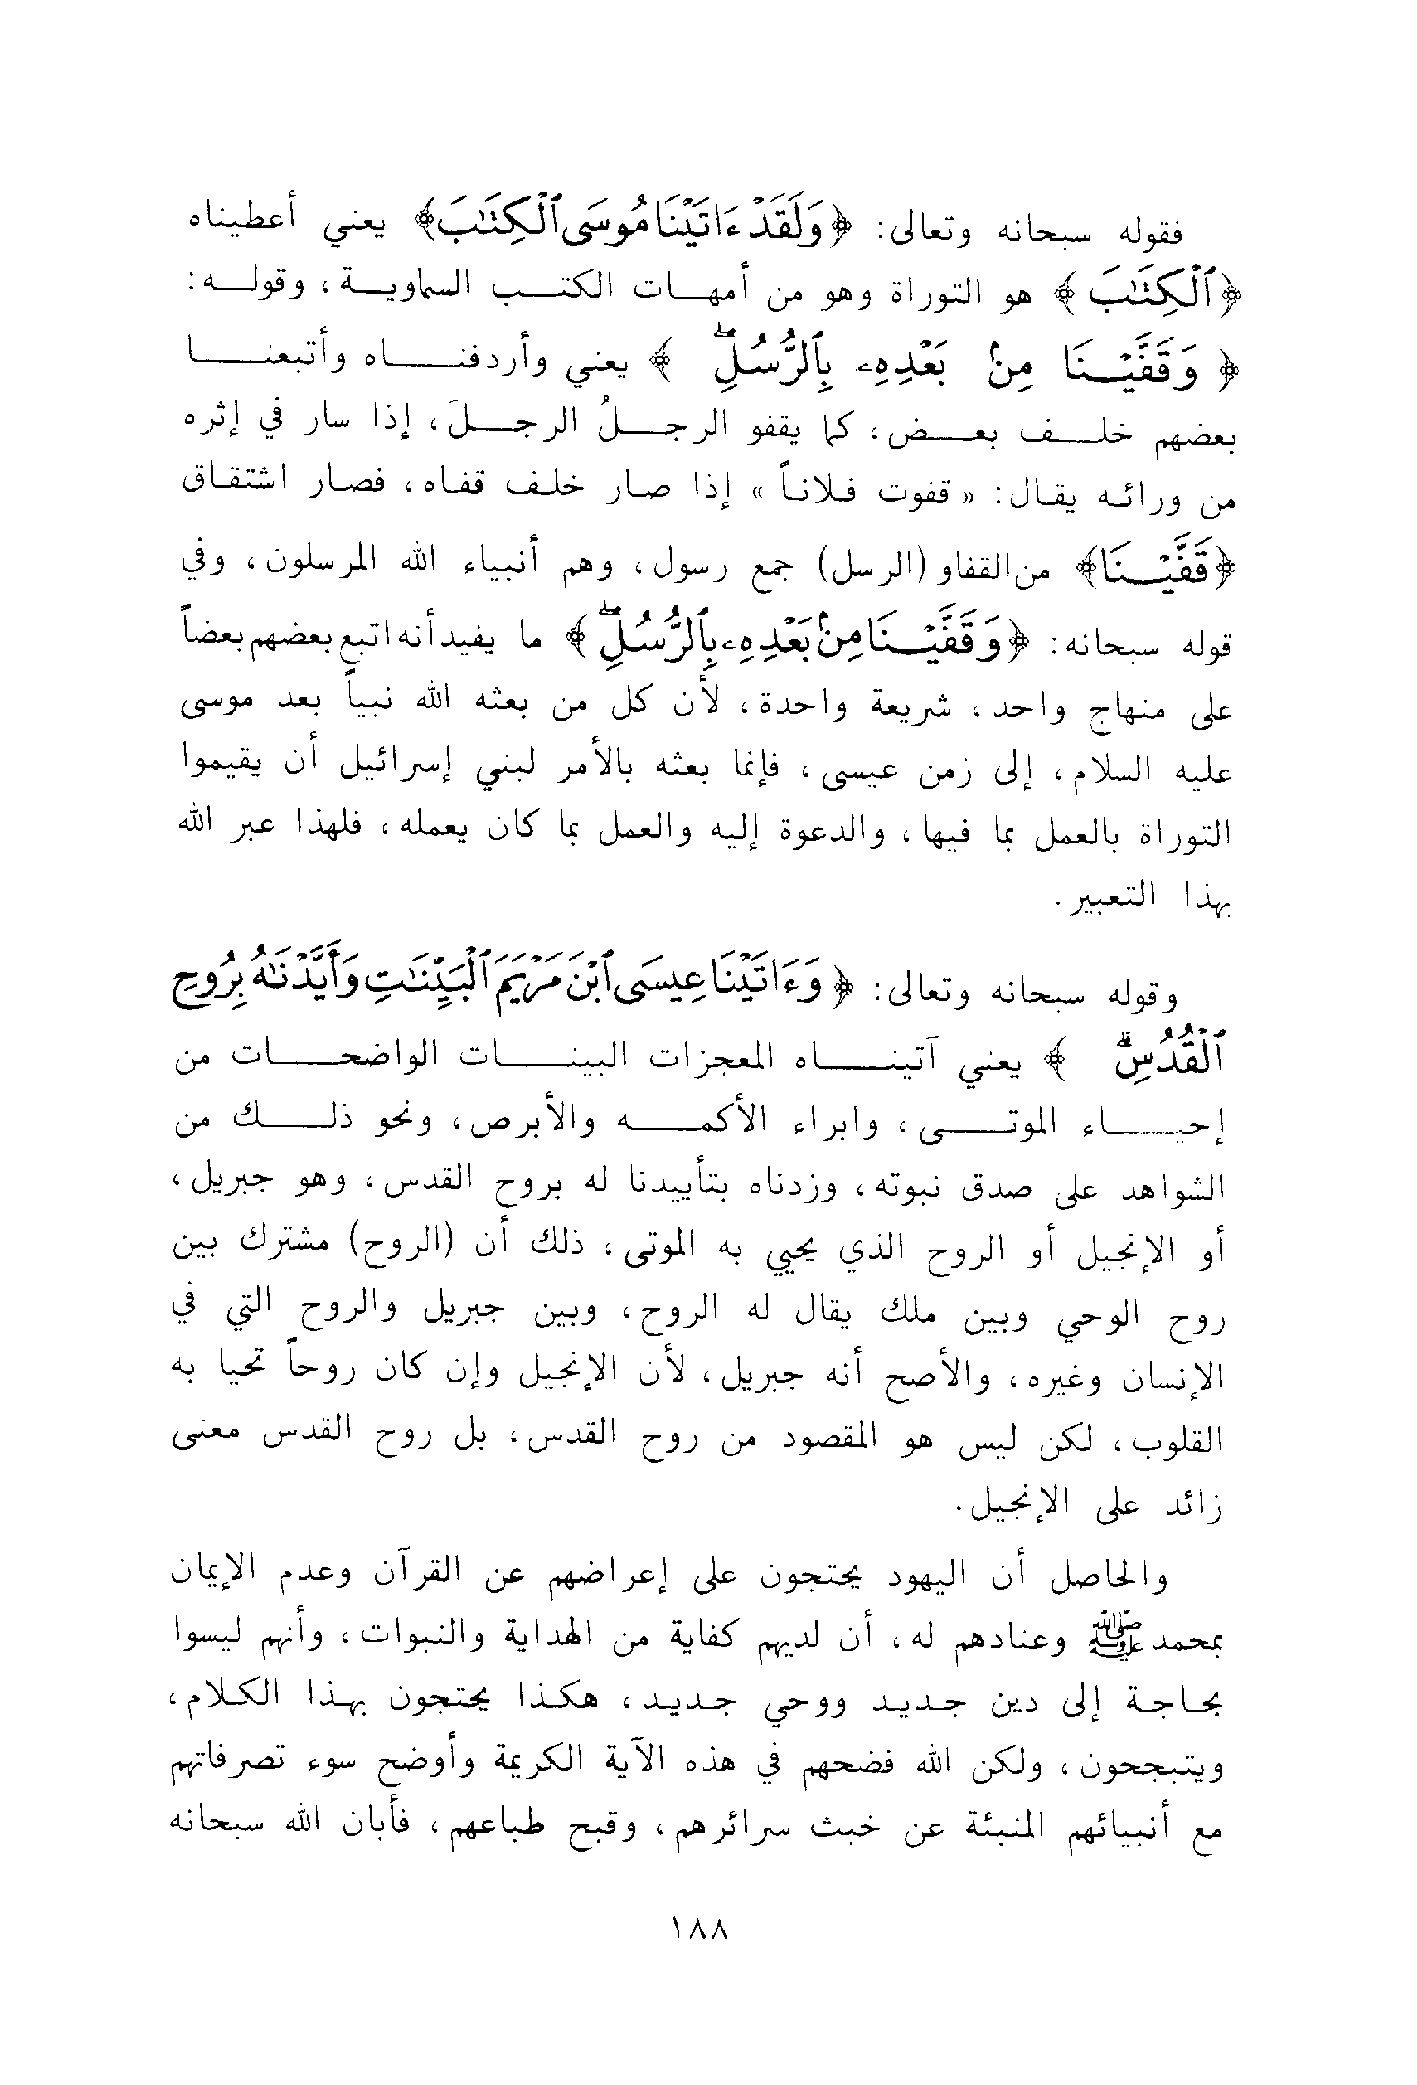 فقوله سبحانه وتعالى: ﴿وَلَقَدْ ءَاتَيْنَا مُوسَى ٱلْكِتَٰبَ﴾ يعني أعطيناه
﴿ٱلْكِتَٰبَ﴾ هو التوراة وهو من أمهات الكتب السماوية، وقوله:
﴿وَقَفَّيْنَا مِنۢ بَعْدِهِۦ بِٱلرُّسُلِۖ﴾ يعني وأردفناه وأتبعنا
بعضهم خلف بعض، كما يقفو الرجلُ الرجلَ، إذا سار في إثره
من ورائه يقال: «قفوت فلاناً» إذا صار خلف قفاه، فصار اشتقاق
﴿قَفَّيْنَا﴾ من القفا و(الرسل) جمع رسول، وهم أنبياء الله المرسلون، وفي
قوله سبحانه: ﴿وَقَفَّيْنَا مِنۢ بَعْدِهِۦ بِٱلرُّسُلِۖ﴾ ما يفيد أنه اتبع بعضهم بعضاً
على منهاج واحد، شريعة واحدة، لأن كل من بعثه الله نبياً بعد موسى
عليه السلام، إلى زمن عيسى، فإنما بعثه بالأمر لبني إسرائيل أن يقيموا
التوراة بالعمل بما فيها، والدعوة إليه والعمل بما كان يعمله، فلهذا عبر الله
بهذا التعبير.
وقوله سبحانه وتعالى: ﴿وَءَاتَيْنَا عِيسَى ٱبْنَ مَرْيَمَ ٱلْبَيِّنَٰتِ وَأَيَّدْنَٰهُ بِرُوحِ
ٱلْقُدُسِۗ﴾ يعني آتيناه المعجزات البينات الواضحات من
إحياء الموتى، وابراء الأكمه والأبرص، ونحو ذلك من
الشواهد على صدق نبوته، وزدناه بتأييدنا له بروح القدس، وهو جبريل،
أو الإنجيل أو الروح الذي يحيي به الموتى، ذلك أن (الروح) مشترك بين
روح الوحي وبين ملك يقال له الروح، وبين جبريل والروح التي في
الإنسان وغيره، والأصح أنه جبريل، لأن الإنجيل وإن كان روحاً تحيا به
القلوب، لكن ليس هو المقصود من روح القدس، بل روح القدس معنى
زائد على الإنجيل.
والحاصل أن اليهود يحتجون على إعراضهم عن القرآن وعدم الإيمان
بمحمد ﷺ وعنادهم له، أن لديهم كفاية من الهداية والنبوات، وأنهم ليسوا
بحاجة إلى دين جديد ووحي جديد، هكذا يحتجون بهذا الكلام،
ويتبجحون، ولكن الله فضحهم في هذه الآية الكريمة وأوضح سوء تصرفاتهم
مع أنبيائهم المنبئة عن خبث سرائرهم، وقبح طباعهم، فأبان الله سبحانه
١٨٨